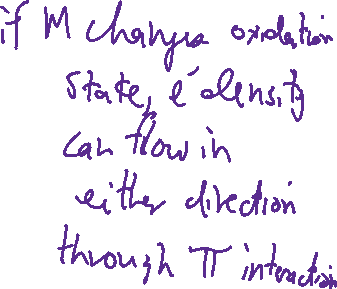 if M changes oxidation
state, e⁻ density
can flow in
either direction
through π interaction